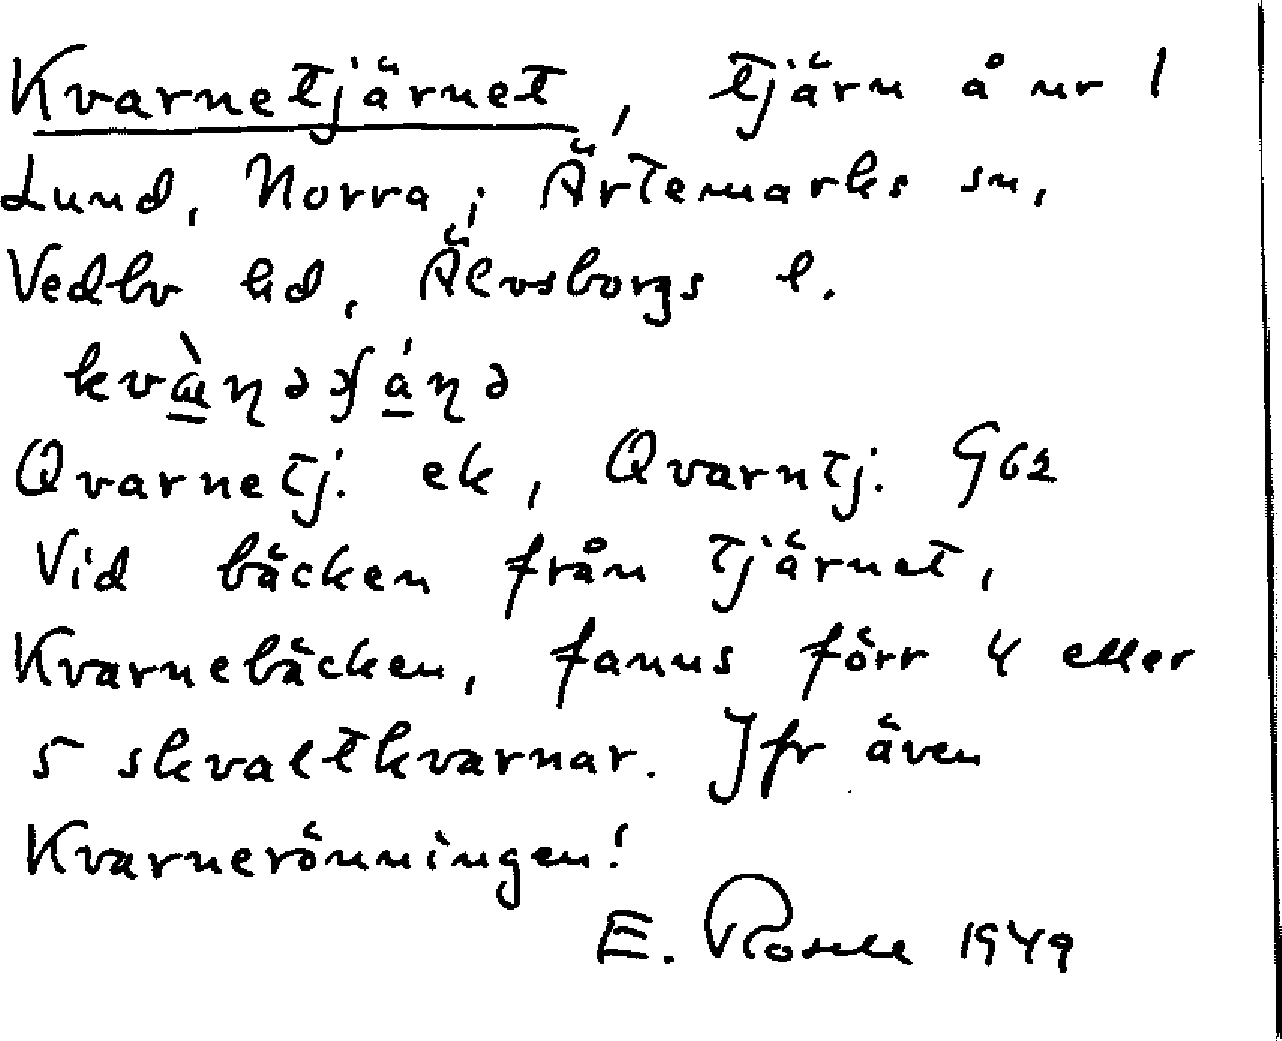 Kvarnetjärnet, tjärn å nr 1
Lund, Norra, Ärtemarks sn,
Vedbo hd, Älvsborgs l.
Qvarnetj. ek, Qvarntj. G62
Vid bäcken från tjärnet,
Kvarnebäcken, fanns förr 4 eller
5 skvaltkvarnar. Jfr även
Kvarnerönningen!
E. Rosell 1949